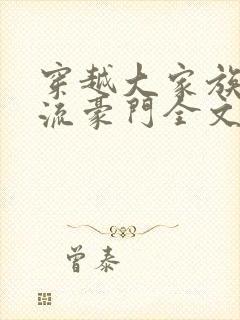 穿越大家族
流豪門全文
曾泰